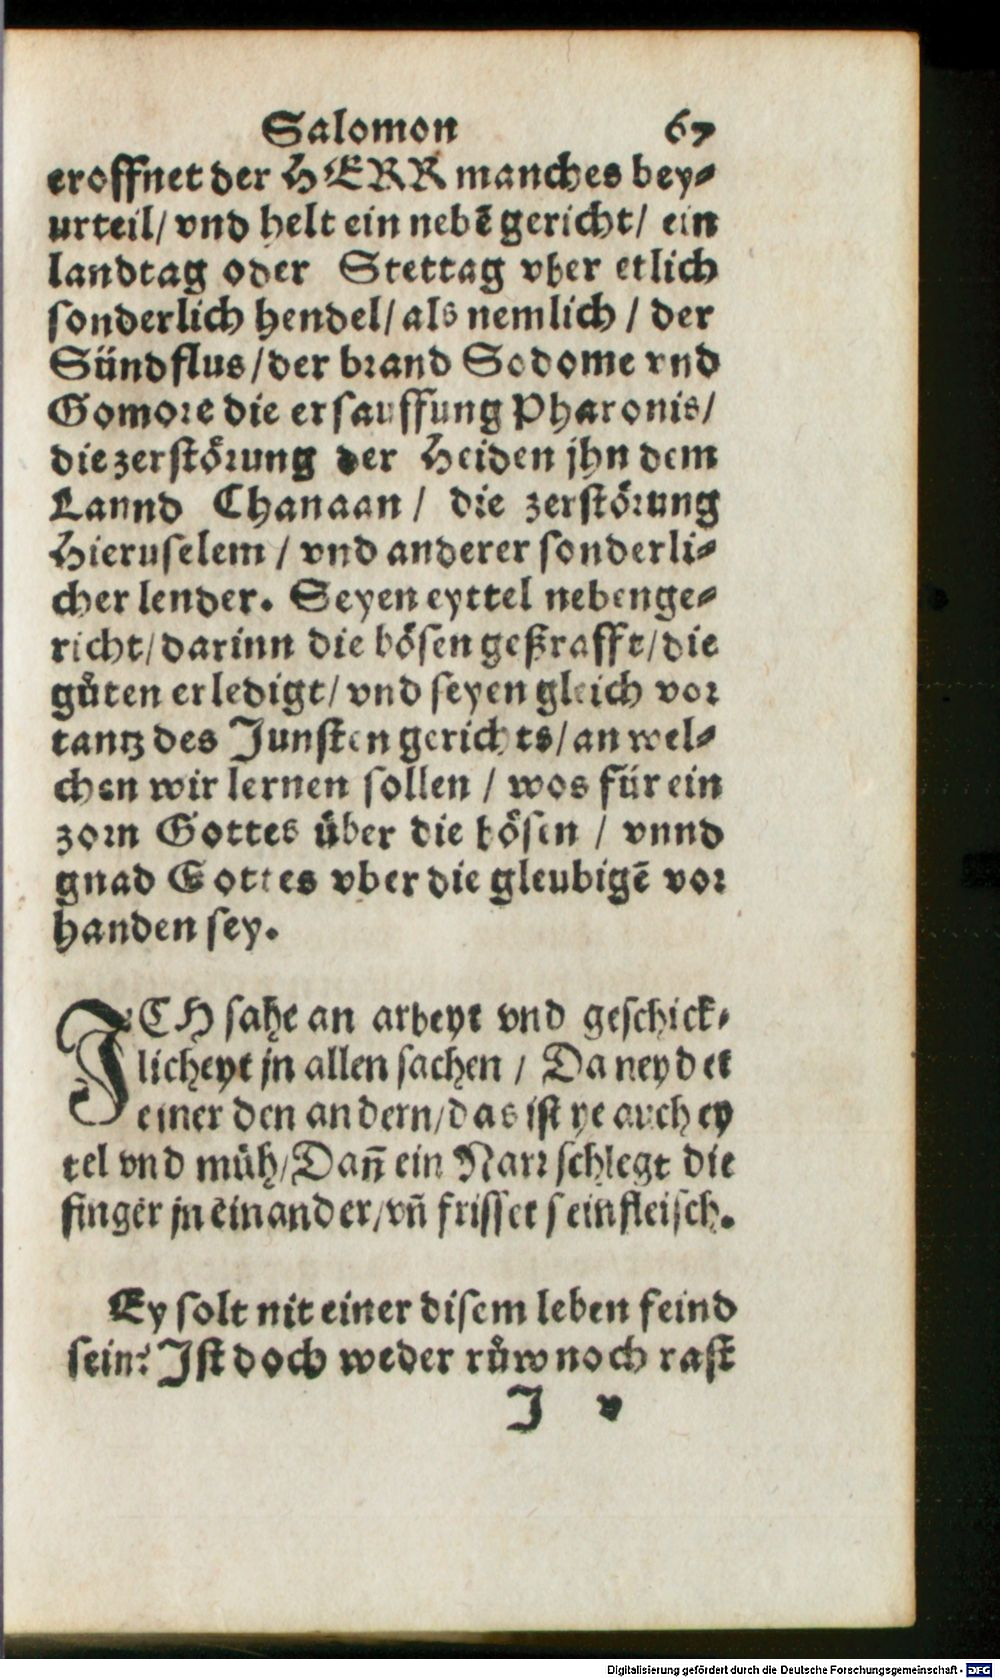 Salomon 67
eroffnet der HERR manches bey⸗
urteil/ vnd helt ein nebē gericht/ ein
landtag oder Stettag vber etlich
sonderlich hendel/ als nemlich / der
Sündflus/der brand Sodome vnd
Gomore die ersauffung Pharonis/
die zerstörung der Heiden jhn dem
Lannd Chanaan / die zerstörung
Hieruselem / vnd anderer sonderli⸗
cher lender. Seyen eyttel nebenge⸗
richt/darinn die bösen geßrafft/die
gůten erledigt/ vnd seyen gleich vor
tantz des Junsten gerichts/an wel⸗
chen wir lernen sollen / wos für ein
zorn Gottes über die bösen / vnnd
gnad Gottes vber die gleubigē vor
handen sey.
ICH sahe an arbeyt vnd geschick⸗
licheyt jn allen sachen / Da neydet
einer den andern/das ist ye auch ey
tel vnd müh/Dañ ein Narr schlegt die
finger jn einander/vñ frisset sein fleisch.
Ey solt nit einer disem leben feind
sein? Ist doch weder růw noch rast
J v
Digitalisierung gefördert durch die Deutsche Forschungsgemeinschaft - DFG